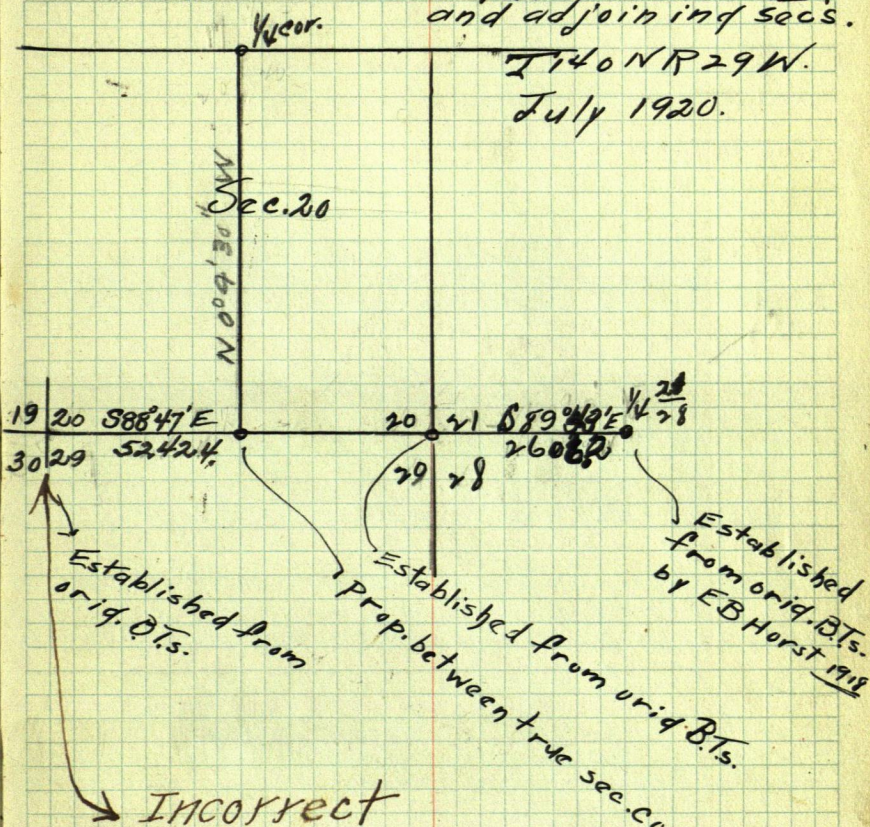 and adjoining secs.
1/4 cor.
T 140 N R 29 W.
July 1920.
Sec. 20
N 0°04'30" W
19 20 S88°47'E
20 21 S89°
1/4 21/28
30 29 5242.4
29 28
Established from
orig. B.Ts.
Prop. between true sec.
Established from orig. B.Ts.
Established
from orig. B.Ts.
by EB Horst 1918
Incorrect